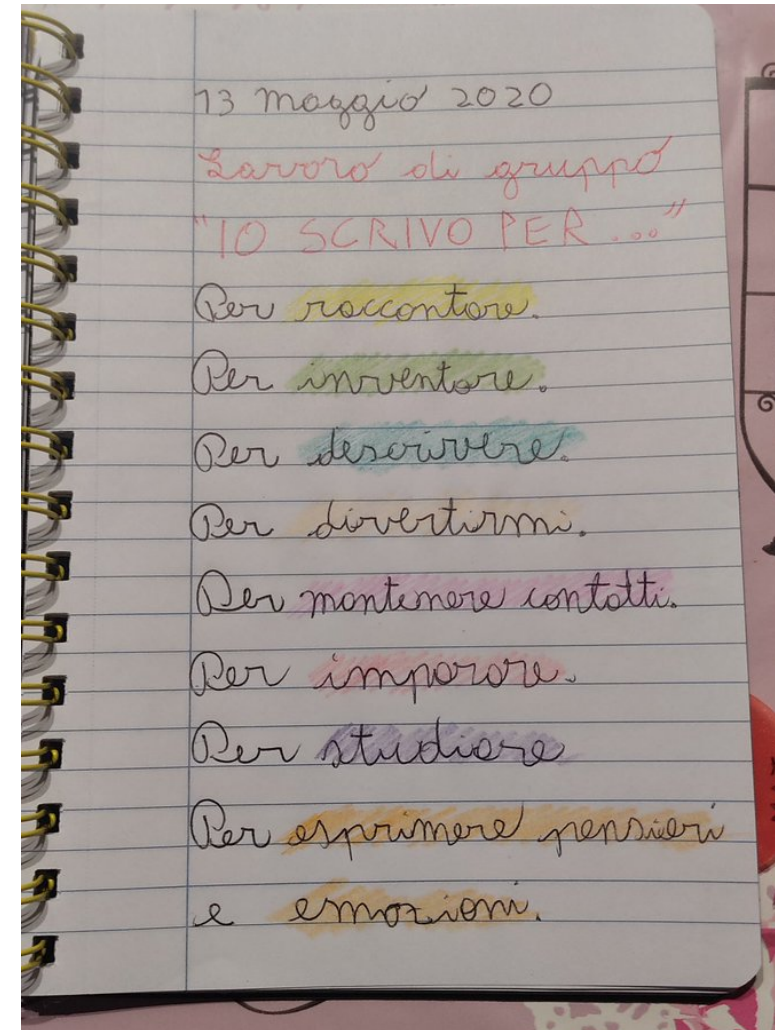 13 maggio 2020
Lavoro di gruppo
"IO SCRIVO PER..."
Per raccontare.
Per inventare.
Per descrivere.
Per divertirmi.
Per mantenere contatti.
Per imparare.
Per studiare
Per esprimere pensieri
e emozioni.